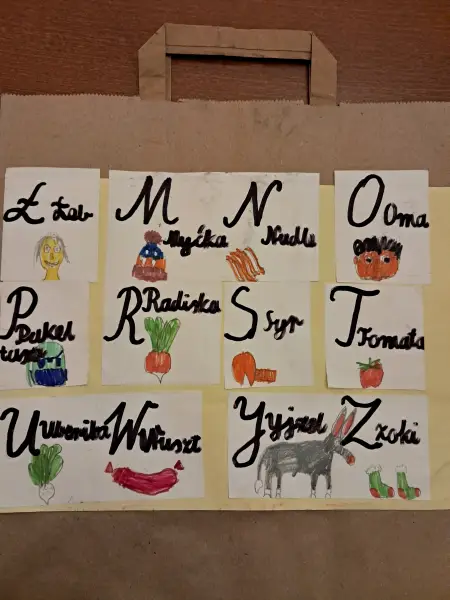 Ł Łeb
M Myćka
N Nudle
O Oma
P Pukel
R Radiska
S Syr
T Tomata
U Uberiba
W Wuszt
Y Yjzel
Z Zoki